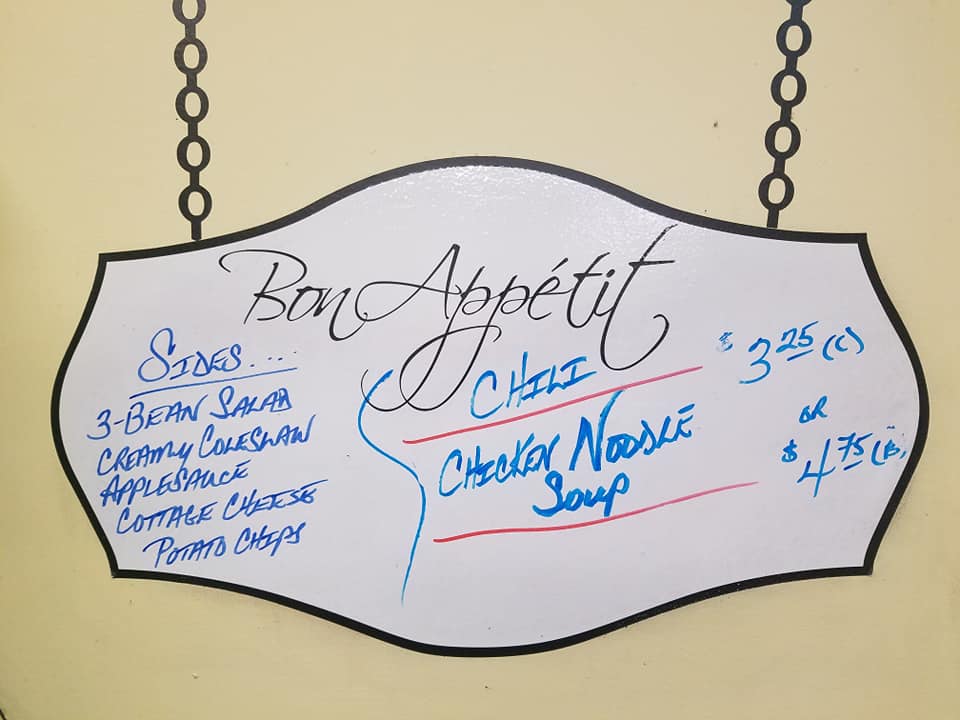 Bon Appétit
SIDES...
3-BEAN SALAD
CREAMY COLESLAW
APPLESAUCE
COTTAGE CHEESE
POTATO CHIPS
CHILI
CHICKEN NOODLE
SOUP
$3.25 (C)
OR
$4.75 (B)